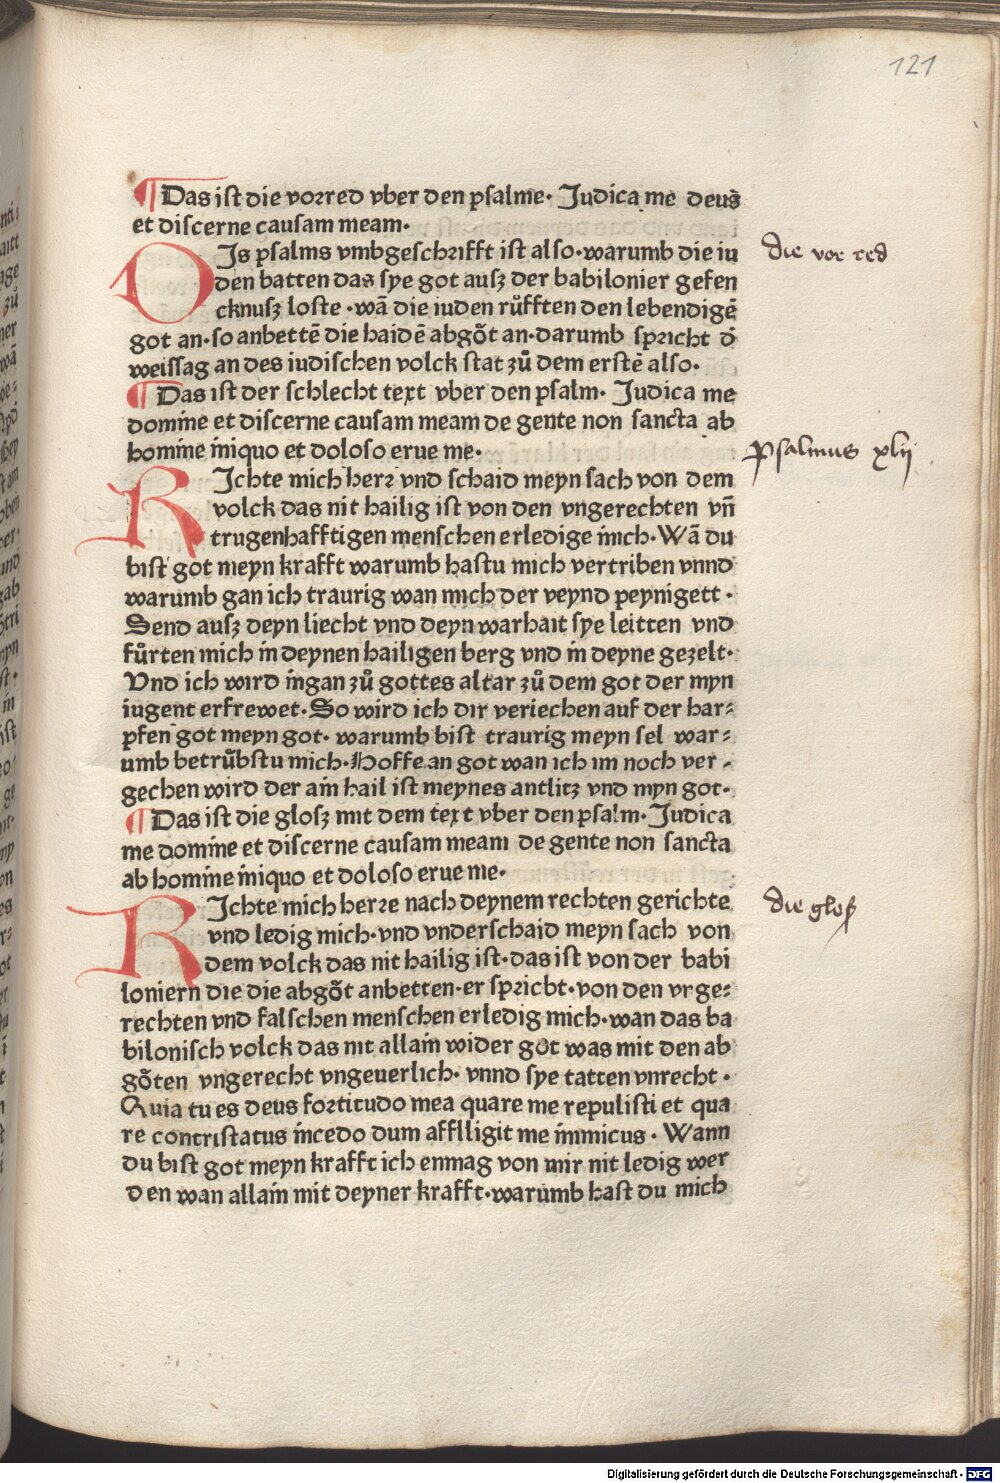 121
¶ Das ist die vorred vber den psalme· Judica me deus
et discerne causam meam·
DIs psalms vmbgeschrifft ist also·warumb die iu
die vor red
den batten das sye got ausz der babilonier gefen
cknusz loste ·wā die iuden růfften den lebendigē
got an·so anbettē die haidē abgȍt an·darumb spricht d̄
weissag an des iudischen volck stat zů dem erstē also·
¶ Das ist der schlecht text vber den psalm· Judica me
domine et discerne causam meam de gente non sancta ab
homine iniquo et doloso erue me·
Psalmus xlij
RIchte mich herr vnd schaid meyn sach von dem
volck das nit hailig ist von den vngerechten vn̄
trugenhafftigen menschen erledige mich·Wā du
bist got meyn krafft warumb hastu mich vertriben vnnd
warumb gan ich traurig wan mich der veynd peynigett ·
Send ausz deyn liecht vnd deyn warhait sye leitten vnd
fůrten mich in deynen hailigen berg vnd in deyne gezelt·
Vnd ich wird ingan zů gottes altar zů dem got der myn
iugent erfrewet·So wird ich dir veriechen auf der har⸗
pfen got meyn got· warumb bist traurig meyn sel war⸗
umb betrůbstu mich·Hoffe an got wan ich im noch ver ⸗
gechen wird der ain hail ist meynes antlitz vnd myn got·
¶ Das ist die glosz mit dem text vber den psalm·Judica
me domine et discerne causam meam de gente non sancta
ab homine iniquo et doloso erue me·
RIchte mich herre nach deynem rechten gerichte
die glosz
vnd ledig mich·vnd vnderschaid meyn sach von
dem volck das nit hailig ist·das ist von der babi
loniern die die abgȍt anbetten·er spricht·von den vrge⸗
rechten vnd falschen menschen erledig mich·wan das ba
bilonisch volck das nit allain wider got was mit den ab
gȍten vngerecht vngeuerlich· vnnd sye tatten vnrecht ·
Quia tu es deus fortitudo mea quare me repulisti et qua
re contristatus incedo dum afflligit me inimicus · Wann
du bist got meyn krafft ich enmag von mir nit ledig wer
den wan allain mit deyner krafft·warumb hast du mich
Digitalisierung gefördert durch die Deutsche Forschungsgemeinschaft - DFG